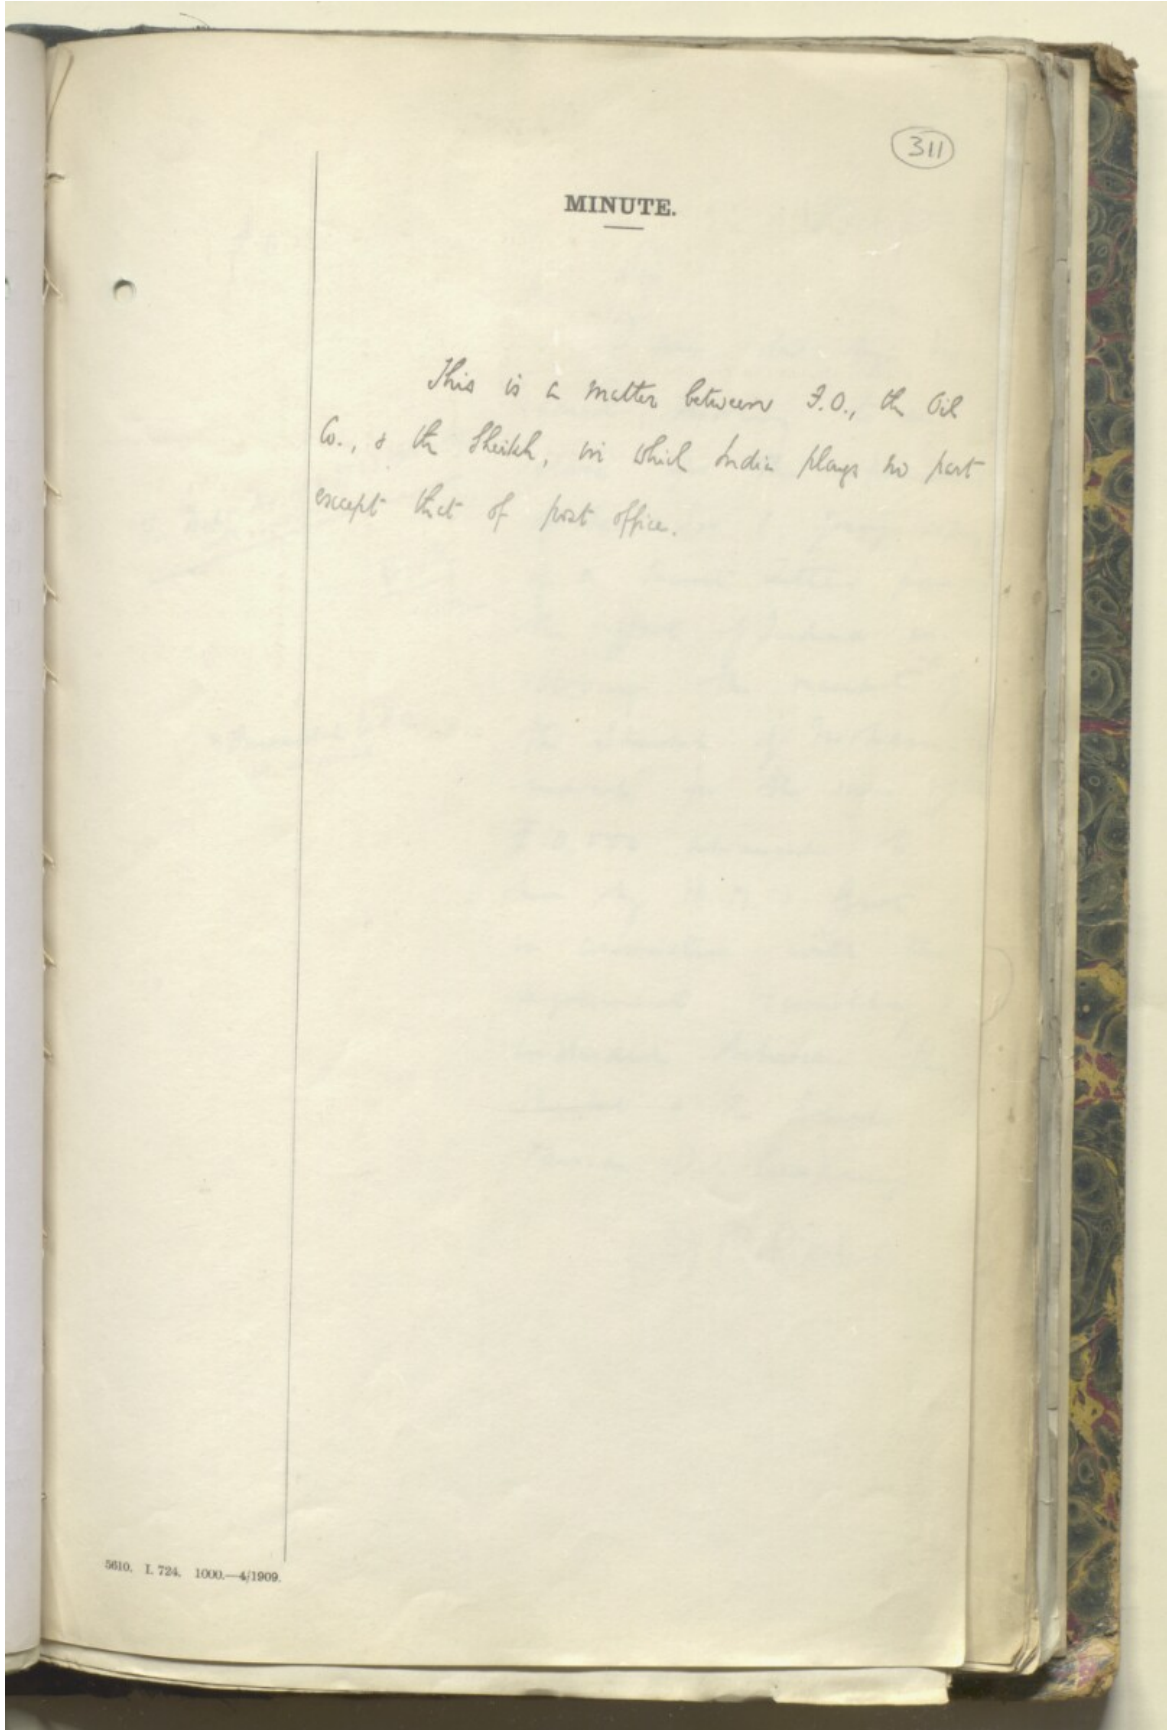 311
MINUTE.
This is a matter between F.O., the Oil
Co., & the Sheikh, in which India plays no part
except that of post office.
5610. I. 724. 1000.—4/1909.